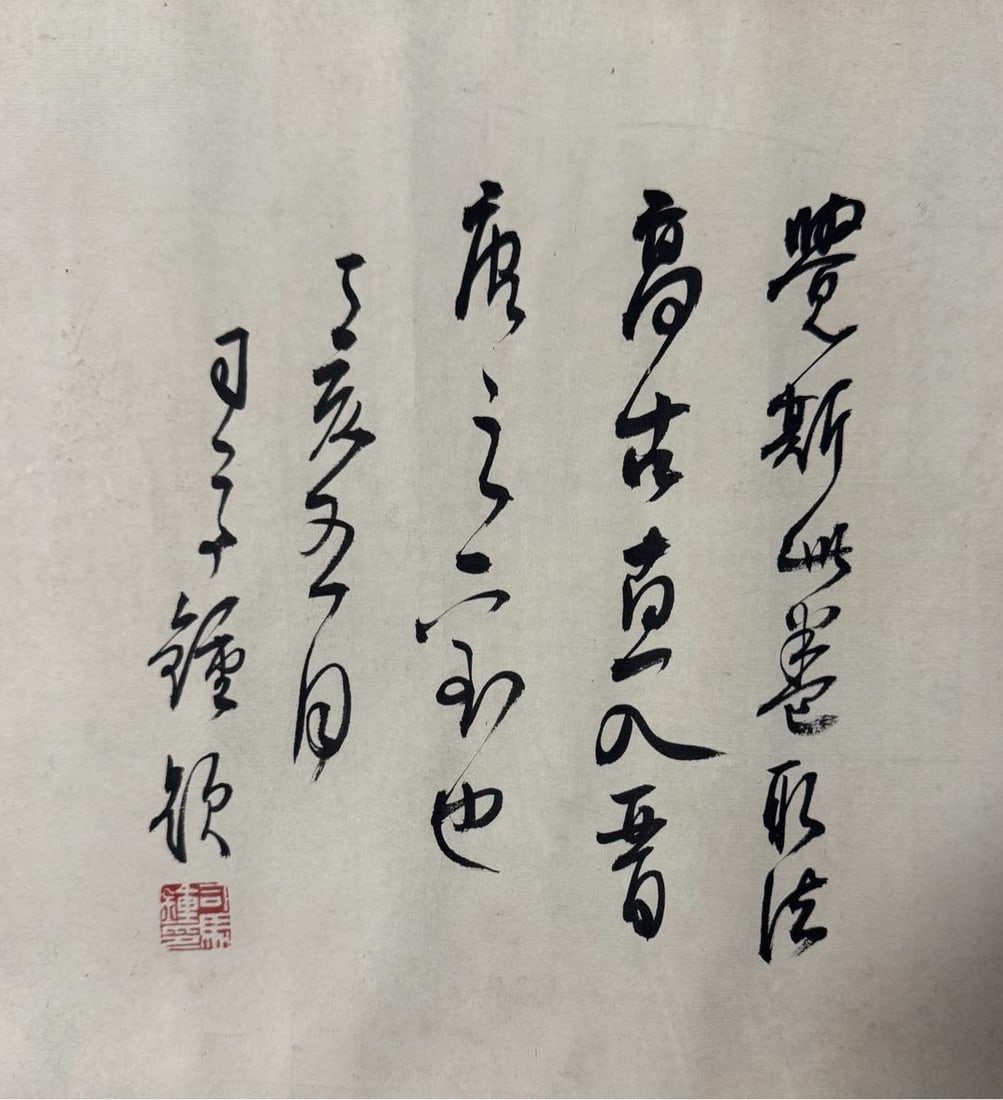 覺斯此卷取法
高古直入晉
唐之室也
丁亥五月
司馬鍾
司馬
鍾印